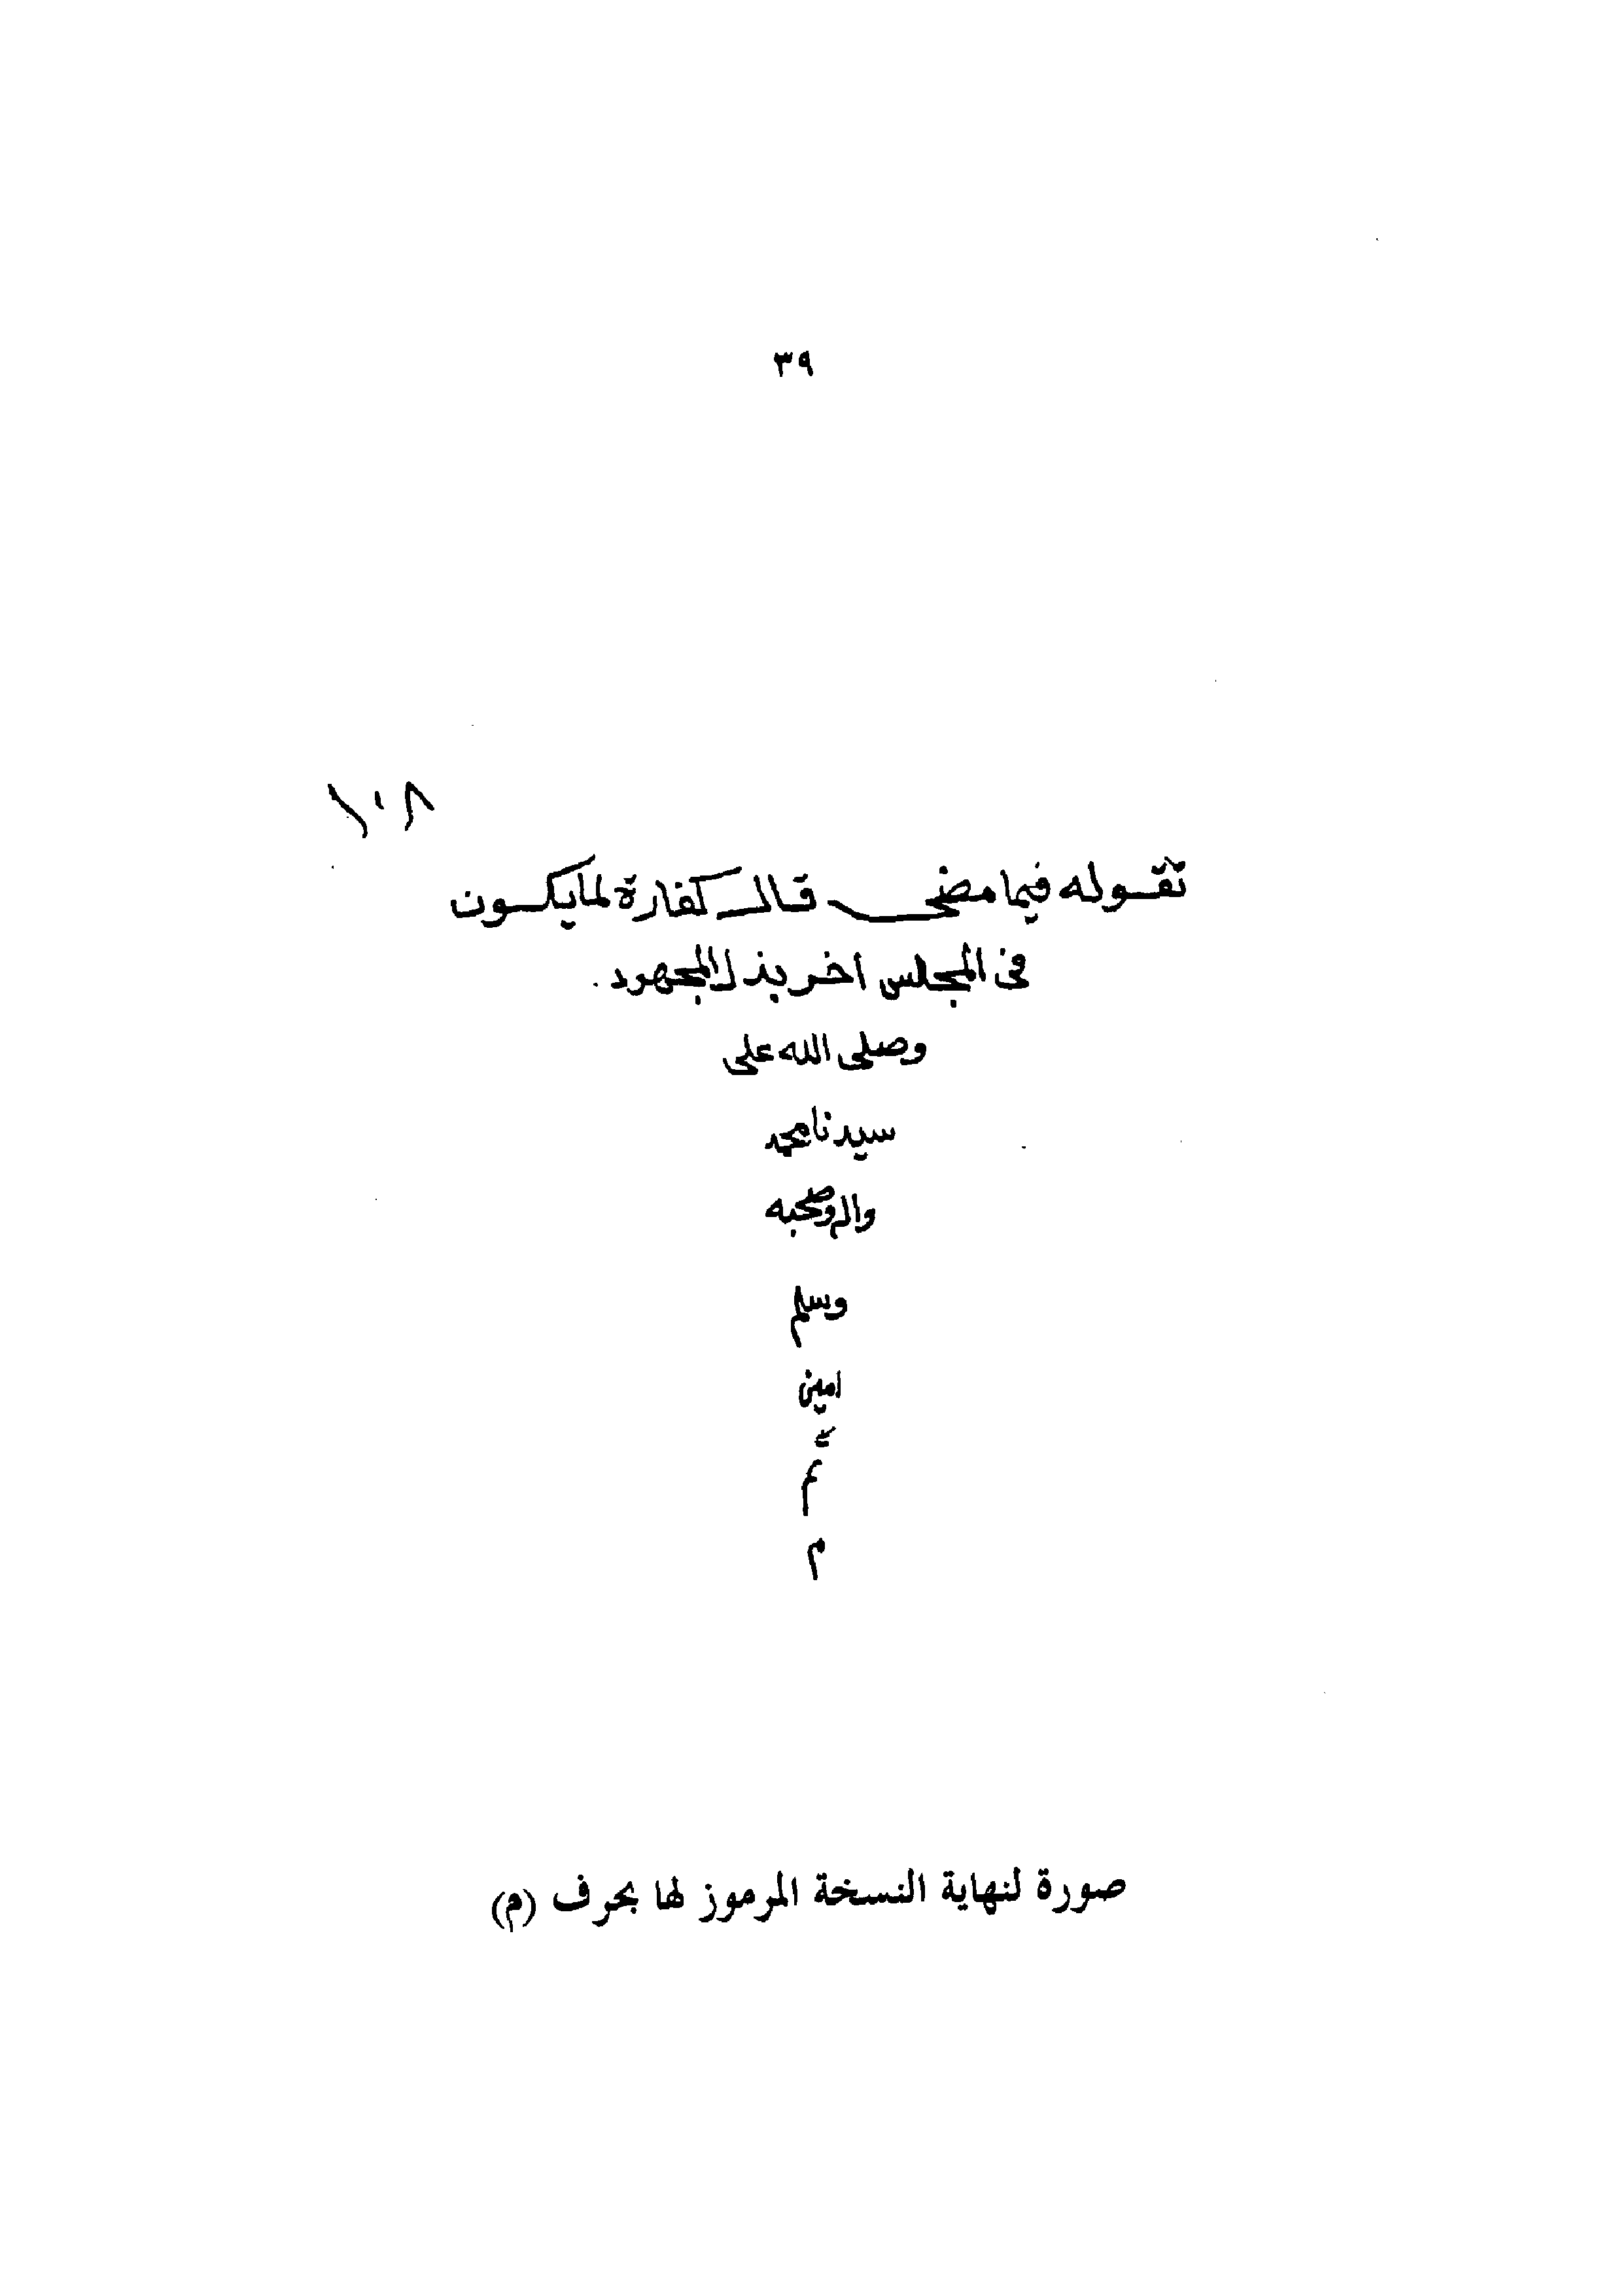 ٣٩
١٠٨
تقوله فيما مضى قال كفارة لما يكون
فى المجلس اخر بذل المجهود.
وصلى الله على
سيدنا محمد
واله وصحبه
وسلم
امين
تم
م
صورة لنهاية النسخة المرموز لها بحرف (م)